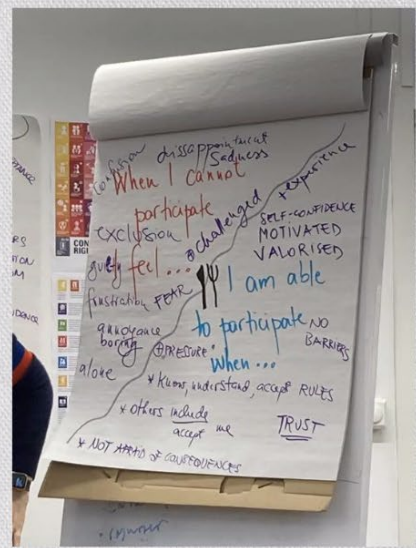 confusion
dissappointment
Sadness
When I cannot
participate
exclusion
I feel...
frustration
FEAR
annoyance
boring
alone
challenged
+ experience
SELF-CONFIDENCE
MOTIVATED
VALORISED
I am able
to participate
when...
NO
BARRIERS
PRESSURE
* Know, understand, accept RULES
* others include
accept me
TRUST
* NOT AFRAID OF CONSEQUENCES
CON
RIG